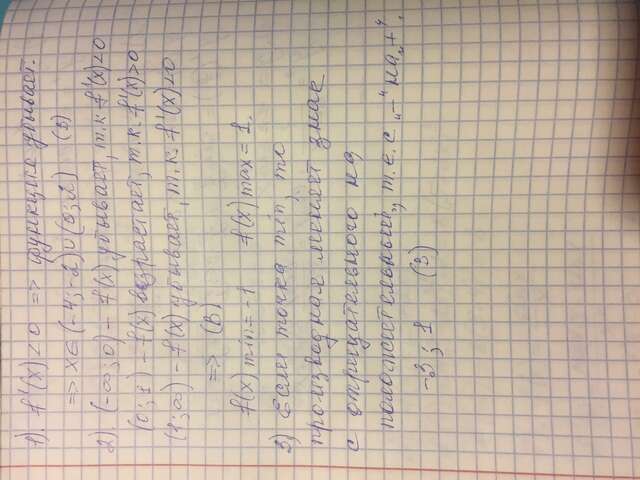 1). f'(x)<0 => функция убывает.
=> x∈(-4;-2)∪(0;2) (В)
2). (-∞;0) - f(x) убывает, т.к. f'(x)<0
(0;1) - f(x) возрастает, т.к. f'(x)>0
(1;∞) - f(x) убывает, т.к. f'(x)<0
=> (В)
f(x) min = -1 f(x) max = 1.
3) Если точка min, то
производная меняет знак
с отрицательного на
положительный, т.е. с „-“ на „+“.
-3; 1 (3)